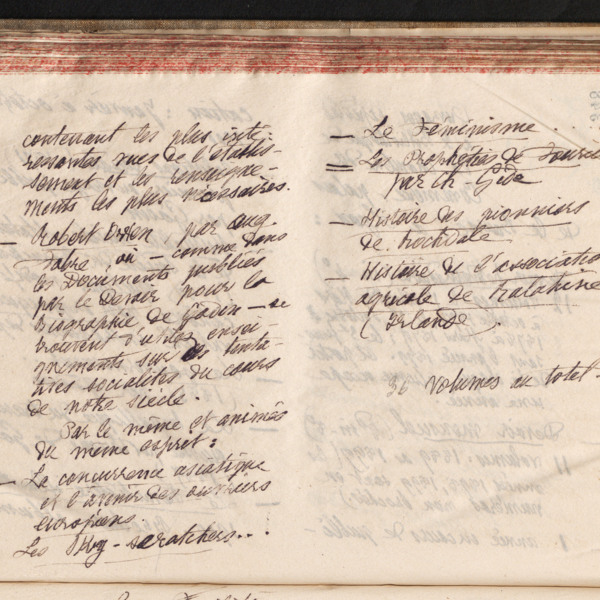 contenant les plus inté-
ressantes vues de l'établis-
sement et les renseigne-
ments les plus nécessaires.
— Robert Owen, par Aug.
Fabre, où — comme dans
les Documents publiés
par le Devoir pour la
Biographie de Godin — se
trouvent d'utiles ensei
gnements sur les tenta-
tives socialites du cours
de notre siècle.
Par le même et animés
du même esprit :
— La concurrence asiatique
et l'avenir des ouvriers
européens.
Les Sky-scratchers...
— Le Feminisme...
= Les Prophéties de Fourier
par Ch. Gide
— Histoire des pionniers
de Rochdale
— Histoire de l'association
agricole de Ralahine
(Irlande).
36 volumes au total.